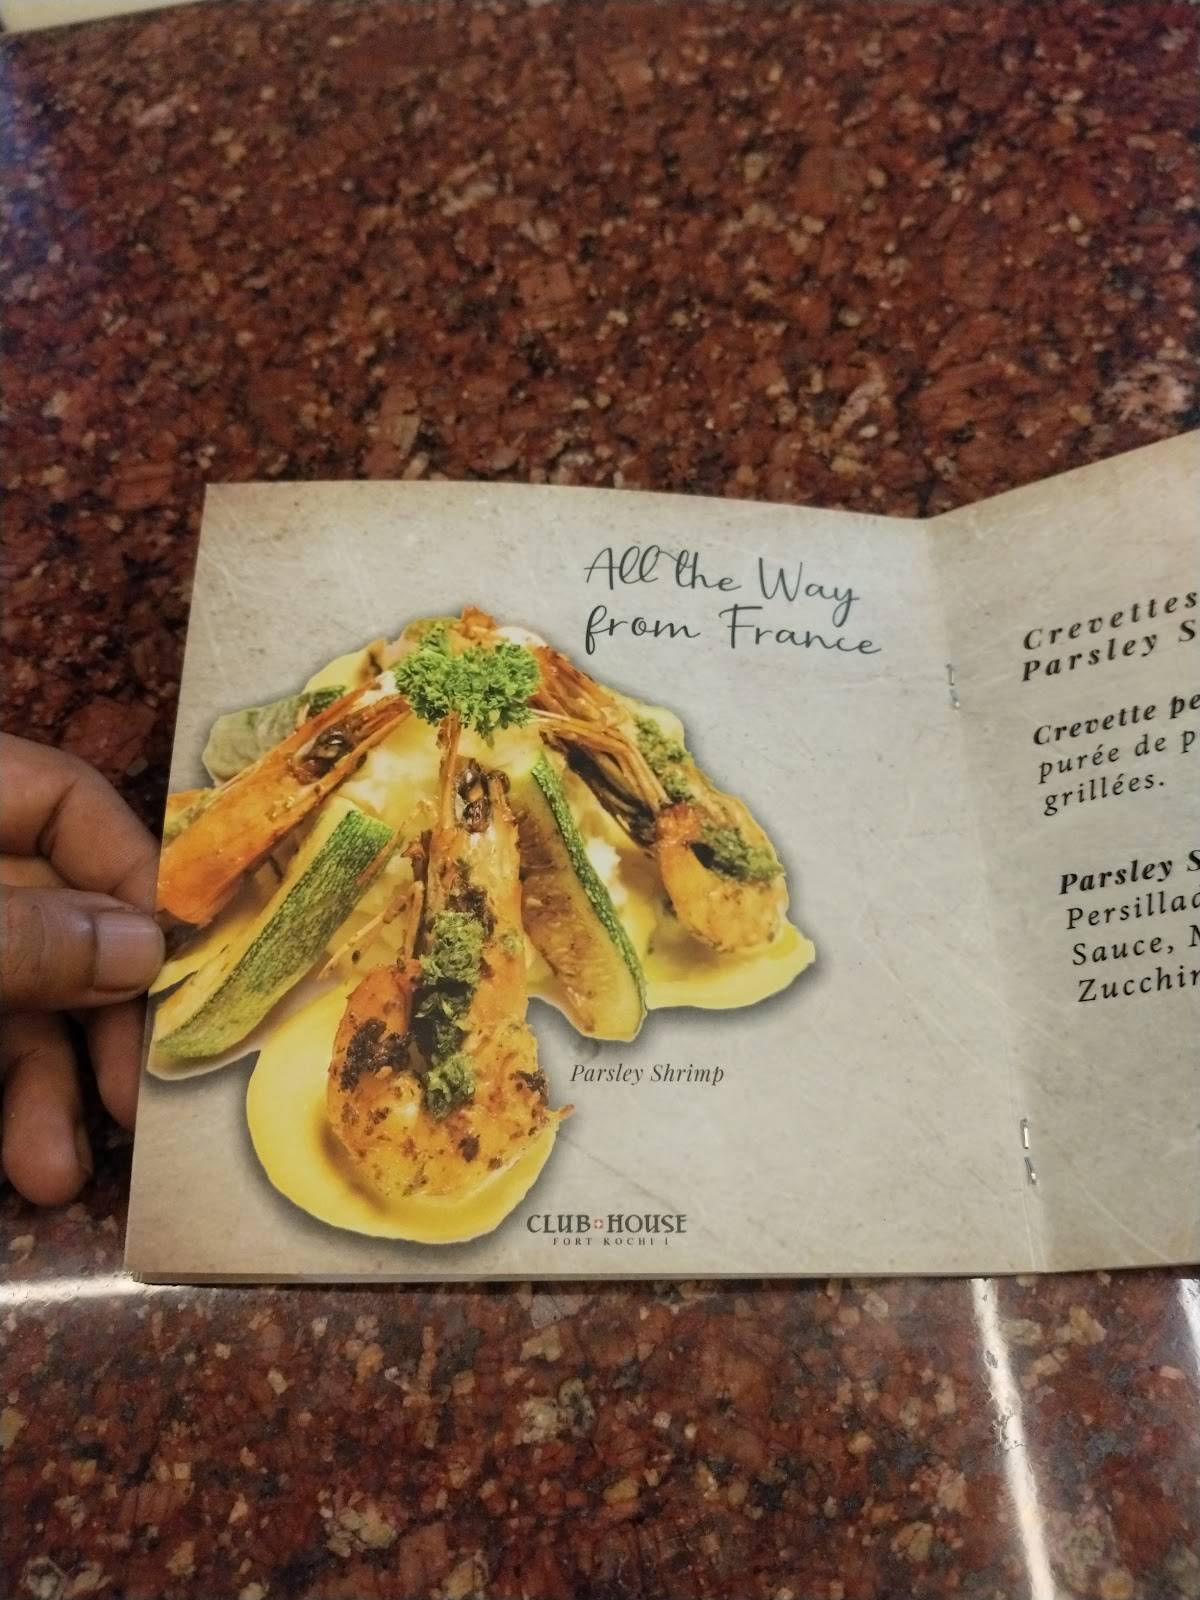 All the Way
from France
Parsley Shrimp
CLUB HOUSE
FORT KOCHI
Crevettes
Parsley S
Crevette pe
purée de p
grillées.
Parsley S
Persillad
Sauce, M
Zucchin